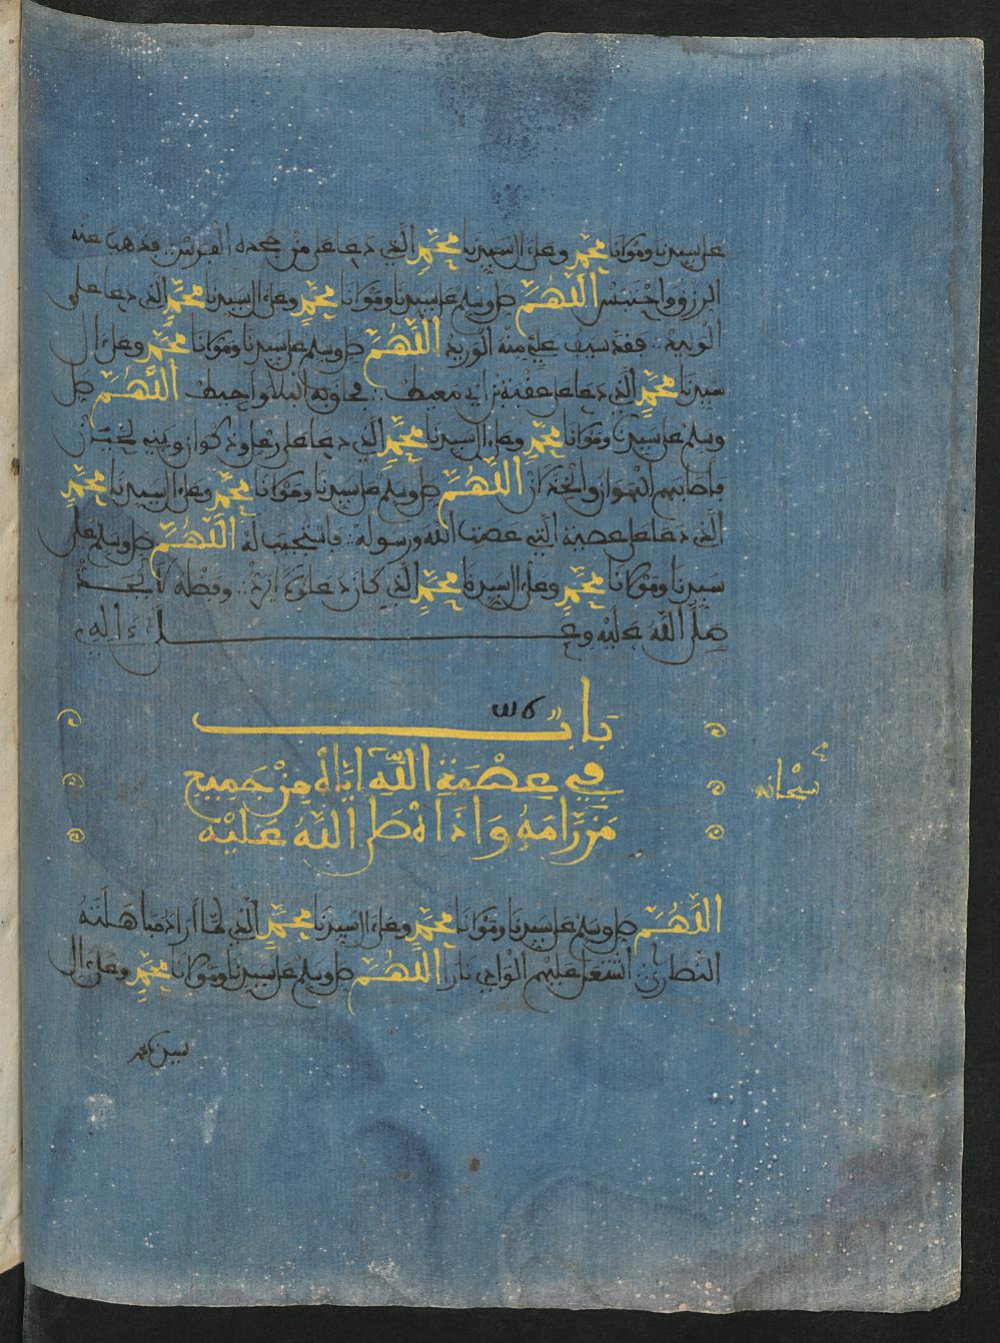 على سيدنا ومولانا محمد وعلى ءال سيدنا محمد الذي دعا على من جحده الفرس فذهب عنه
الرزق واحتبس اللهم صل وسلم على سيدنا ومولانا محمد وعلى ءال سيدنا محمد الذي دعا على
اللهم صل وسلم على سيدنا ومولانا محمد وعلى ءال
سيدنا محمد الذي دعا على عقبة بن أبي معيط اللهم صل
وسلم على سيدنا ومولانا محمد وعلى ءال سيدنا محمد الذي دعا على رعل وذكوان وبني لحيان
فأصابهم الهوان والخذلان اللهم صل وسلم على سيدنا ومولانا محمد وعلى ءال سيدنا محمد
الذي دعا على عصية التي عصت الله ورسوله فاستجيب له اللهم صل وسلم على
سيدنا ومولانا محمد وعلى ءال سيدنا محمد الذي كان دعاؤه
صلى الله عليه وعلى ءاله
باب
في عصمة الله إياه من جميع
سبحانه
من رامه وأذاه صلى الله عليه
اللهم صل وسلم على سيدنا ومولانا محمد وعلى ءال سيدنا محمد الذي لما أراد مباهلته
النصارى اشتعل عليهم الوادي نارا اللهم صل وسلم على سيدنا ومولانا محمد وعلى ءال
سيدنا محمد